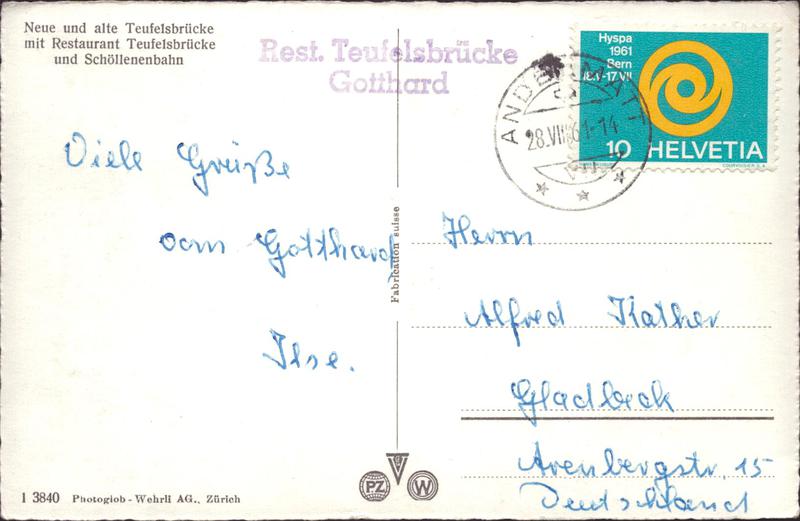 Neue und alte Teufelsbrücke
mit Restaurant Teufelsbrücke
und Schöllenenbahn
Rest. Teufelsbrücke
Gotthard
Hyspa
1961
Bern
18.V-17.VII
10 HELVETIA
COURVOISIER S.A.
ANDERMATT
28.VIII.61-14
Viele Grüße
vom Gotthard
Ilse.
Fabrication suisse
Herrn
Alfred Kather
Gladbeck
Arenbergstr. 15
Deutschland
PZ W
1 3840 Photoglob-Wehrli AG., Zürich